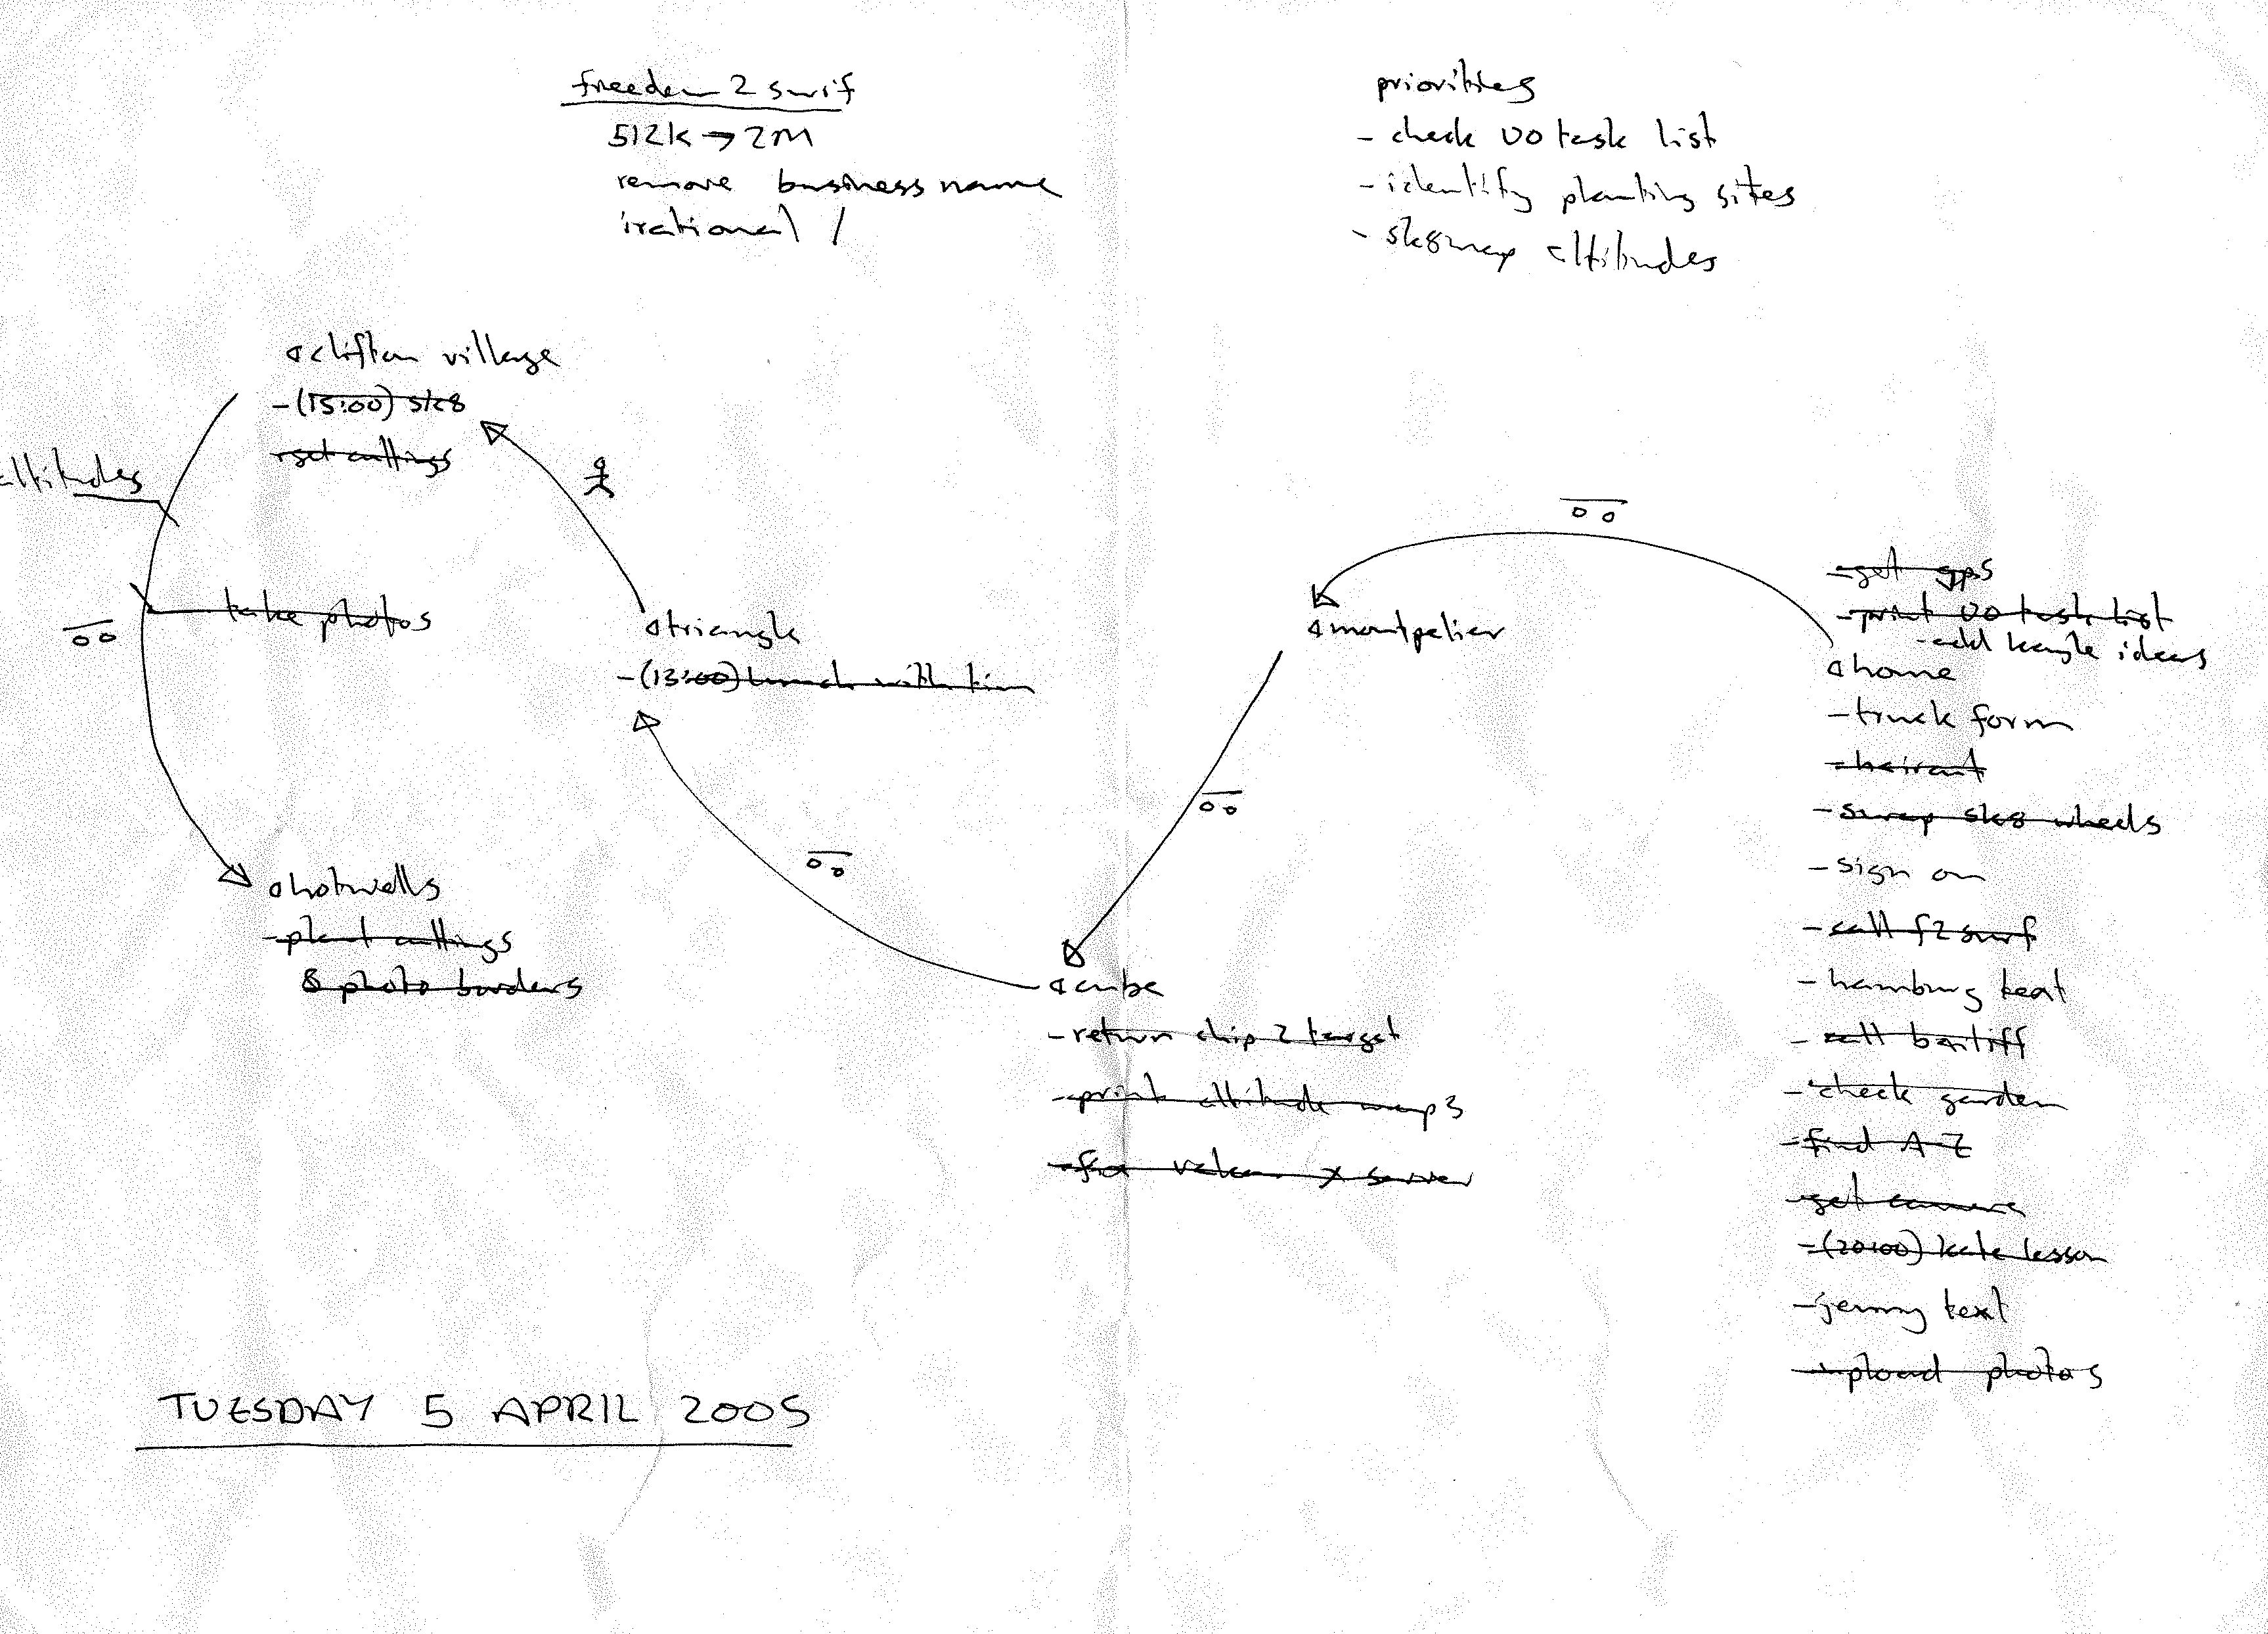 freedom 2 surf
512k → 2M
remove business name
irational /
priorities
- check UO task list
- identify planting sites
- sk8map altitudes
clifton village
- (15:00) sk8
- get cuttings
altitudes
take photos
triangle
- (13:00) lunch with tim
hotwells
- plant cuttings
& photo borders
montpelier
cube
- return chip 2 target
- print altitude maps
- fix x server
- get gps
- print UO task list
- add ideas
home
- truck form
- haircut
- swap sk8 wheels
- sign on
- call f2surf
- hamburg text
- call bailiff
- check garden
- find A-Z
- get camera
- (20:00) kate lesson
- jenny text
- upload photos
TUESDAY 5 APRIL 2005